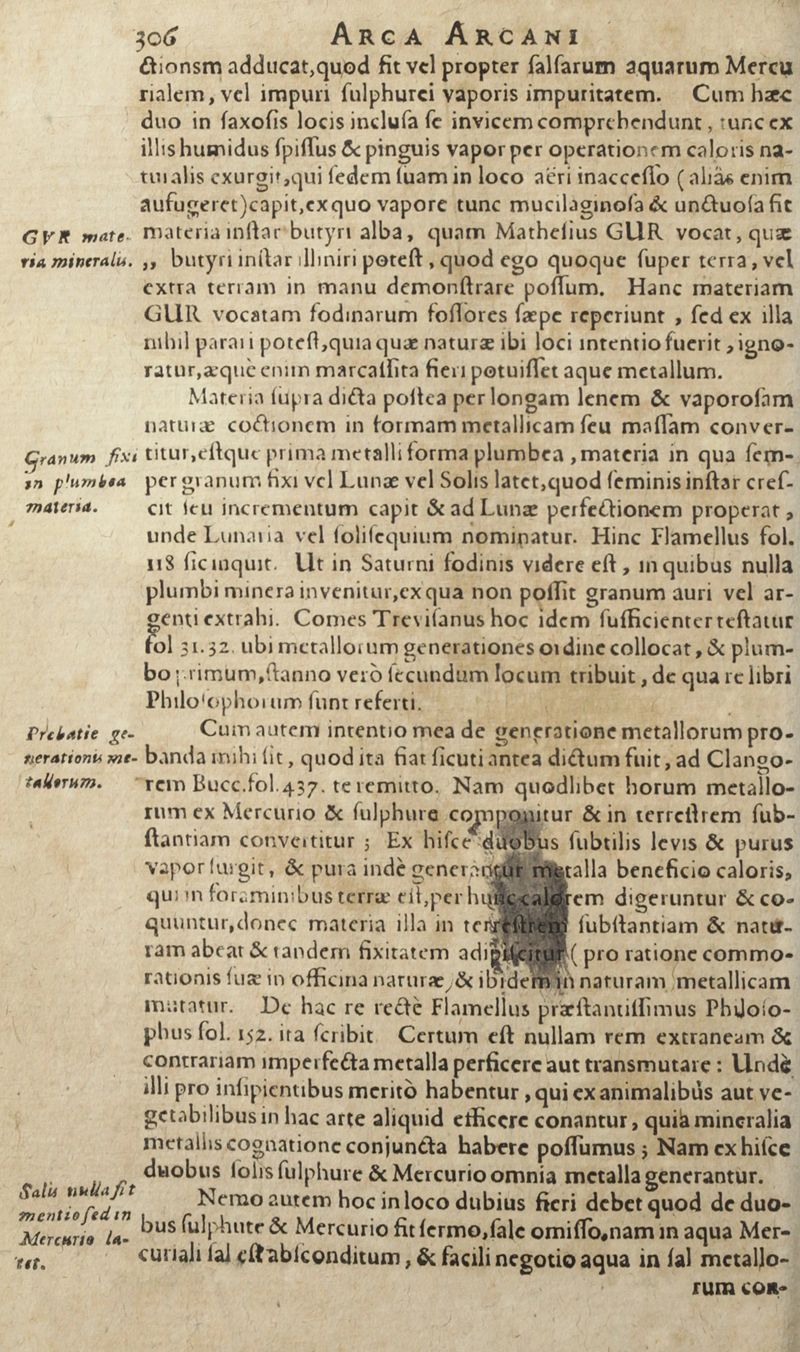 306 ARCA ARCANI
ctionsm adducat,quod fit vel propter falsarum aquarum Mercu
rialem, vel impuri sulphurei vaporis impuritatem. Cum hæc
duo in saxosis locis inclusa se invicem comprehendunt, tunc ex
illis humidus spissus & pinguis vapor per operationem caloris na-
turalis exurgit,qui sedem suam in loco aëri inaccesso (aliàs enim
aufugeret)capit,ex quo vapore tunc mucilaginosa & unctuosa fit
GVR mate- materia instar butyri alba, quam Mathesius GUR vocat, quæ
ria mineralis. ,, butyri instar illiniri potest, quod ego quoque super terra, vel
extra terram in manu demonstrare possum. Hanc materiam
GUR vocatam fodinarum fossores sæpe reperiunt, sed ex illa
nihil parari potest,quia quæ naturæ ibi loci intentio fuerit, igno-
ratur,æquè enim marcassita fieri potuisset aque metallum.
Materia supra dicta postea per longam lenem & vaporosam
naturæ coctionem in formam metallicam seu massam conver-
Granum fixi titur,estque prima metalli forma plumbea, materia in qua sem-
in plumbea per granum fixi vel Lunæ vel Solis latet,quod seminis instar cres-
materia. cit seu incrementum capit & ad Lunæ perfectionem properat,
unde Lunaria vel solisequium nominatur. Hinc Flamellus fol.
118 sic inquit. Ut in Saturni fodinis videre est, in quibus nulla
plumbi minera invenitur,ex qua non possit granum auri vel ar-
genti extrahi. Comes Trevisanus hoc idem sufficienter testatur
fol 31.32. ubi metallorum generationes ordine collocat, & plum-
bo primum,stanno verò secundum locum tribuit, de qua re libri
Philosophorum sunt referti.
Probatie ge- Cum autem intentio mea de generatione metallorum pro-
nerationis me- banda mihi sit, quod ita fiat sicuti antea dictum fuit, ad Clango-
tallorum. rem Bucc.fol.437. te remitto. Nam quodlibet horum metallo-
rum ex Mercurio & sulphure componitur & in terrestrem sub-
stantiam convertitur ; Ex hisce duobus subtilis levis & purus
vapor surgit, & pura indè generantur metalla beneficio caloris,
qui in foraminibus terræ est,per hunc calorem digeruntur & co-
quuntur,donec materia illa in terrestrem substantiam & natu-
ram abeat & tandem fixitatem adipiscitur ( pro ratione commo-
rationis suæ in officina naturæ,& ibidem in naturam metallicam
mutatur. De hac re rectè Flamellus præstantissimus Philoso-
phus fol. 152. ita scribit Certum est nullam rem extraneam &
contrariam imperfecta metalla perficere aut transmutare : Undè
illi pro insipientibus meritò habentur, qui ex animalibus aut ve-
getabilibus in hac arte aliquid efficere conantur, quia mineralia
metallis cognatione conjuncta habere possumus ; Nam ex hisce
duobus solis sulphure & Mercurio omnia metalla generantur.
Salis nulla fit Nemo autem hoc in loco dubius fieri debet quod de duo-
mentio sed in bus sulphure & Mercurio fit sermo,sale omisso,nam in aqua Mer-
Mercurio la-
tet. curiali sal est absconditum, & facili negotio aqua in sal metallo-
rum con-